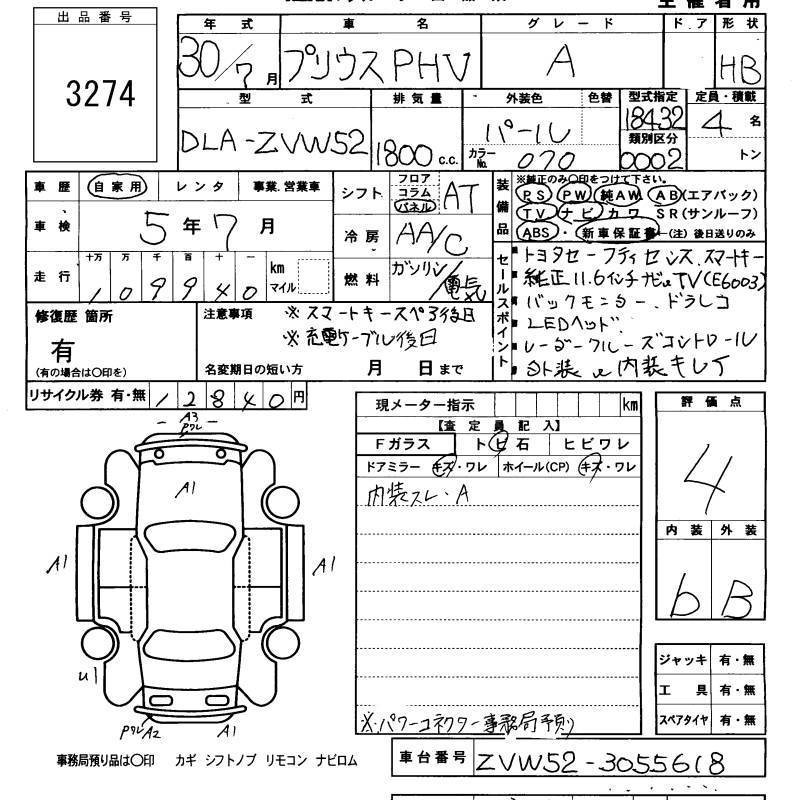 出品番号
3274
年式 車名 グレード ドア 形状
30/7月 プリウスPHV A HB
型式 排気量 外装色 色替 型式指定 定員・積載
DLA-ZVW52 1800c.c. パール 18432 4名
カラーNo. 070 類別区分 0002 トン
車歴 自家用 レンタ 事業.営業車
車検 5年7月
走行 十万 万 千 百 十 一
109940 km マイル
シフト フロア コラム パネル AT
冷房 AA/C
燃料 ガソリン/電気
装備品 ※純正のみ〇印をつけて下さい。
PS PW 純AW AB(エアバック)
TV ナビ カワ SR(サンルーフ)
ABS・新車保証書 (注)後日送りのみ
セールスポイント
トヨタセーフティセンス.スマートキー
純正11.6インチナビ TV(E6003)
バックモニター.ドラレコ
LEDヘッド.
レーダークルーズコントロール
外装 内装キレイ
修復歴 箇所
有
(有の場合は〇印を)
注意事項 ※スマートキースペア後日
※充電ケーブル後日
名変期日の短い方 月 日まで
リサイクル券 有・無 12840円
現メーター指示 km
【査定員記入】
Fガラス トビ石 ヒビワレ
ドアミラー キズ・ワレ ホイール(CP) キズ・ワレ
内装スレ・A
※.パワーコネクター事務局予則
評価点
4
内装 外装
b B
ジャッキ 有・無
工具 有・無
スペアタイヤ 有・無
A3
Pワレ
A1
A1
A1
u1
PワレA2
A1
事務局預り品は〇印 カギ シフトノブ リモコン ナビロム
車台番号 ZVW52-3055618